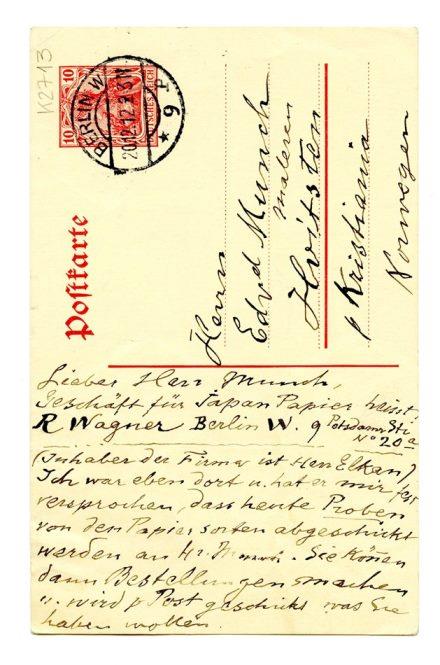 K2713
10 10
DEUTSCHES REICH
BERLIN W
20.12.12.2-3N
* 9 P
Postkarte
Herrn
Edvd Munch
maleren
Hvitsten
p Kristiania
Norwegen
Lieber Herr Munch,
Geschäft für Japan Papier heisst,
R Wagner Berlin W. 9 Potsdamr Str
No 20a
(Inhaber der Firma ist Herr Elkan)
Ich war eben dort u. hat er mir fest
versprochen, dass heute Proben
von den Papier sorten abgeschickt
werden an Sie können
dann Bestellungen machen
u. wird p Post geschickt was Sie
haben wollen.